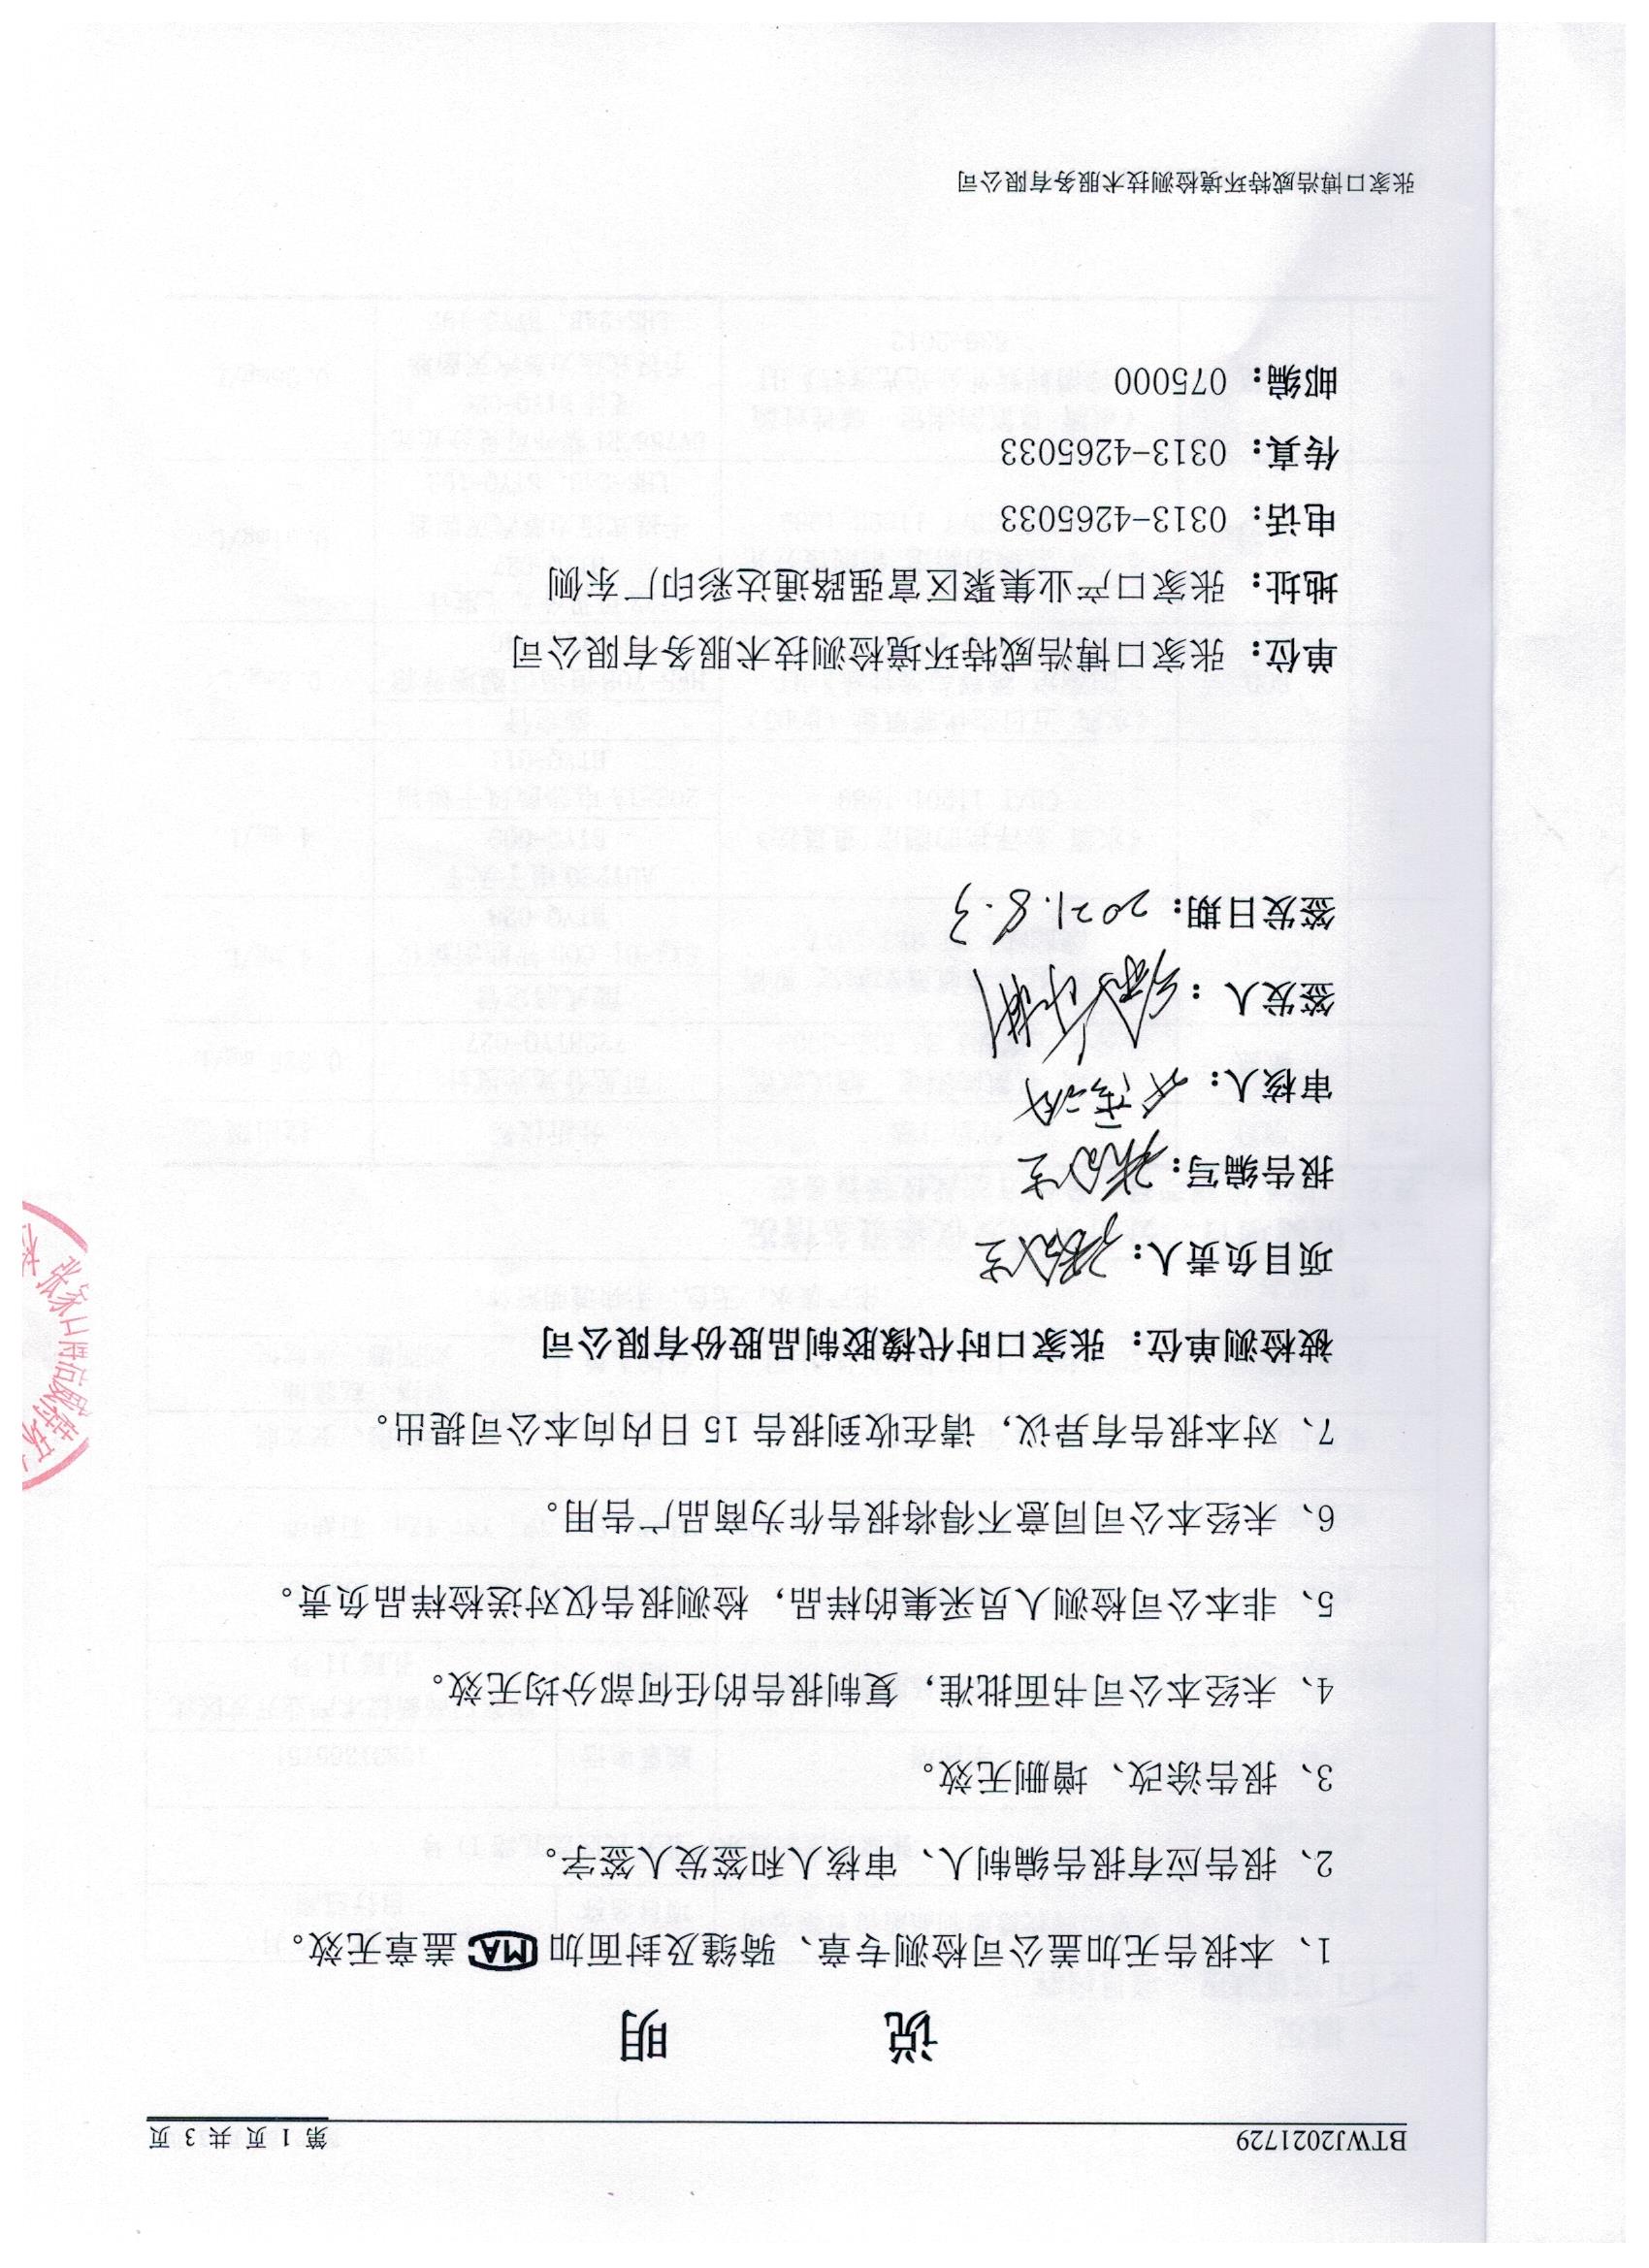 BTWJ2021729 第 1 页 共 3 页
说 明
1、本报告无加盖公司检测专章、骑缝及封面加 MA 盖章无效。
2、报告应有报告编制人、审核人和签发人签字。
3、报告涂改、增删无效。
4、未经本公司书面批准，复制报告的任何部分均无效。
5、非本公司检测人员采集的样品，检测报告仅对送检样品负责。
6、未经本公司同意不得将报告作为商品广告用。
7、对本报告有异议，请在收到报告 15 日内向本公司提出。
被检测单位：张家口时代橡胶制品股份有限公司
项目负责人：
报告编写：
审核人：
签发人：
签发日期：2021.8.3
单位：张家口博浩威特环境检测技术服务有限公司
地址：张家口产业集聚区富强路通达彩印厂东侧
电话：0313-4265033
传真：0313-4265033
邮编：075000
张家口博浩威特环境检测技术服务有限公司